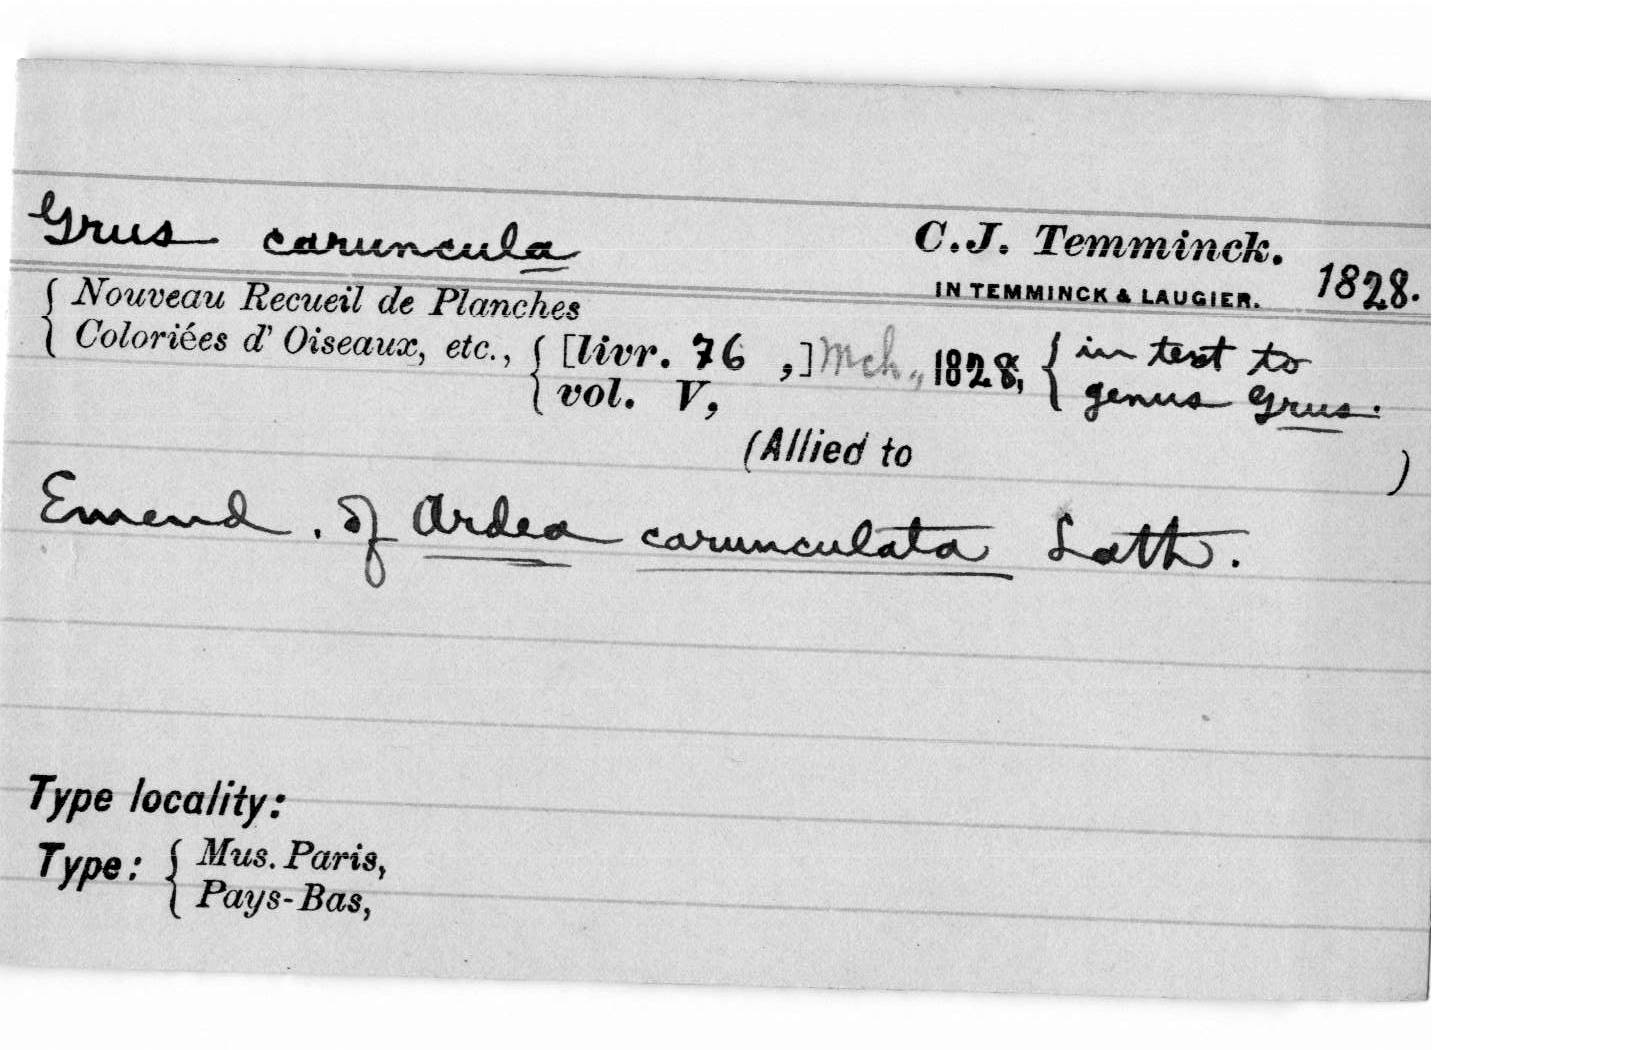 Grus caruncula C.J. Temminck.
IN TEMMINCK & LAUGIER. 1828.
{ Nouveau Recueil de Planches
Coloriées d' Oiseaux, etc., { [livr. 76 ,] Mch., 1828, { in text to
vol. V, genus Grus.
(Allied to )
Emend. of Ardea carunculata Lath.
Type locality:
Type: { Mus. Paris,
Pays-Bas,